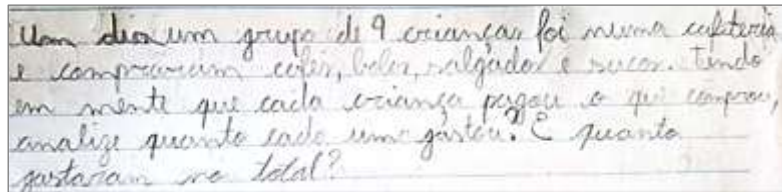 Um dia um grupo de 9 crianças foi numa cafeteria
e compraram cafés, bolos, salgados e sucos. Tendo
em mente que cada criança pagou o que comprou,
analize quanto cada um gastou? E quanto
gastaram no total?